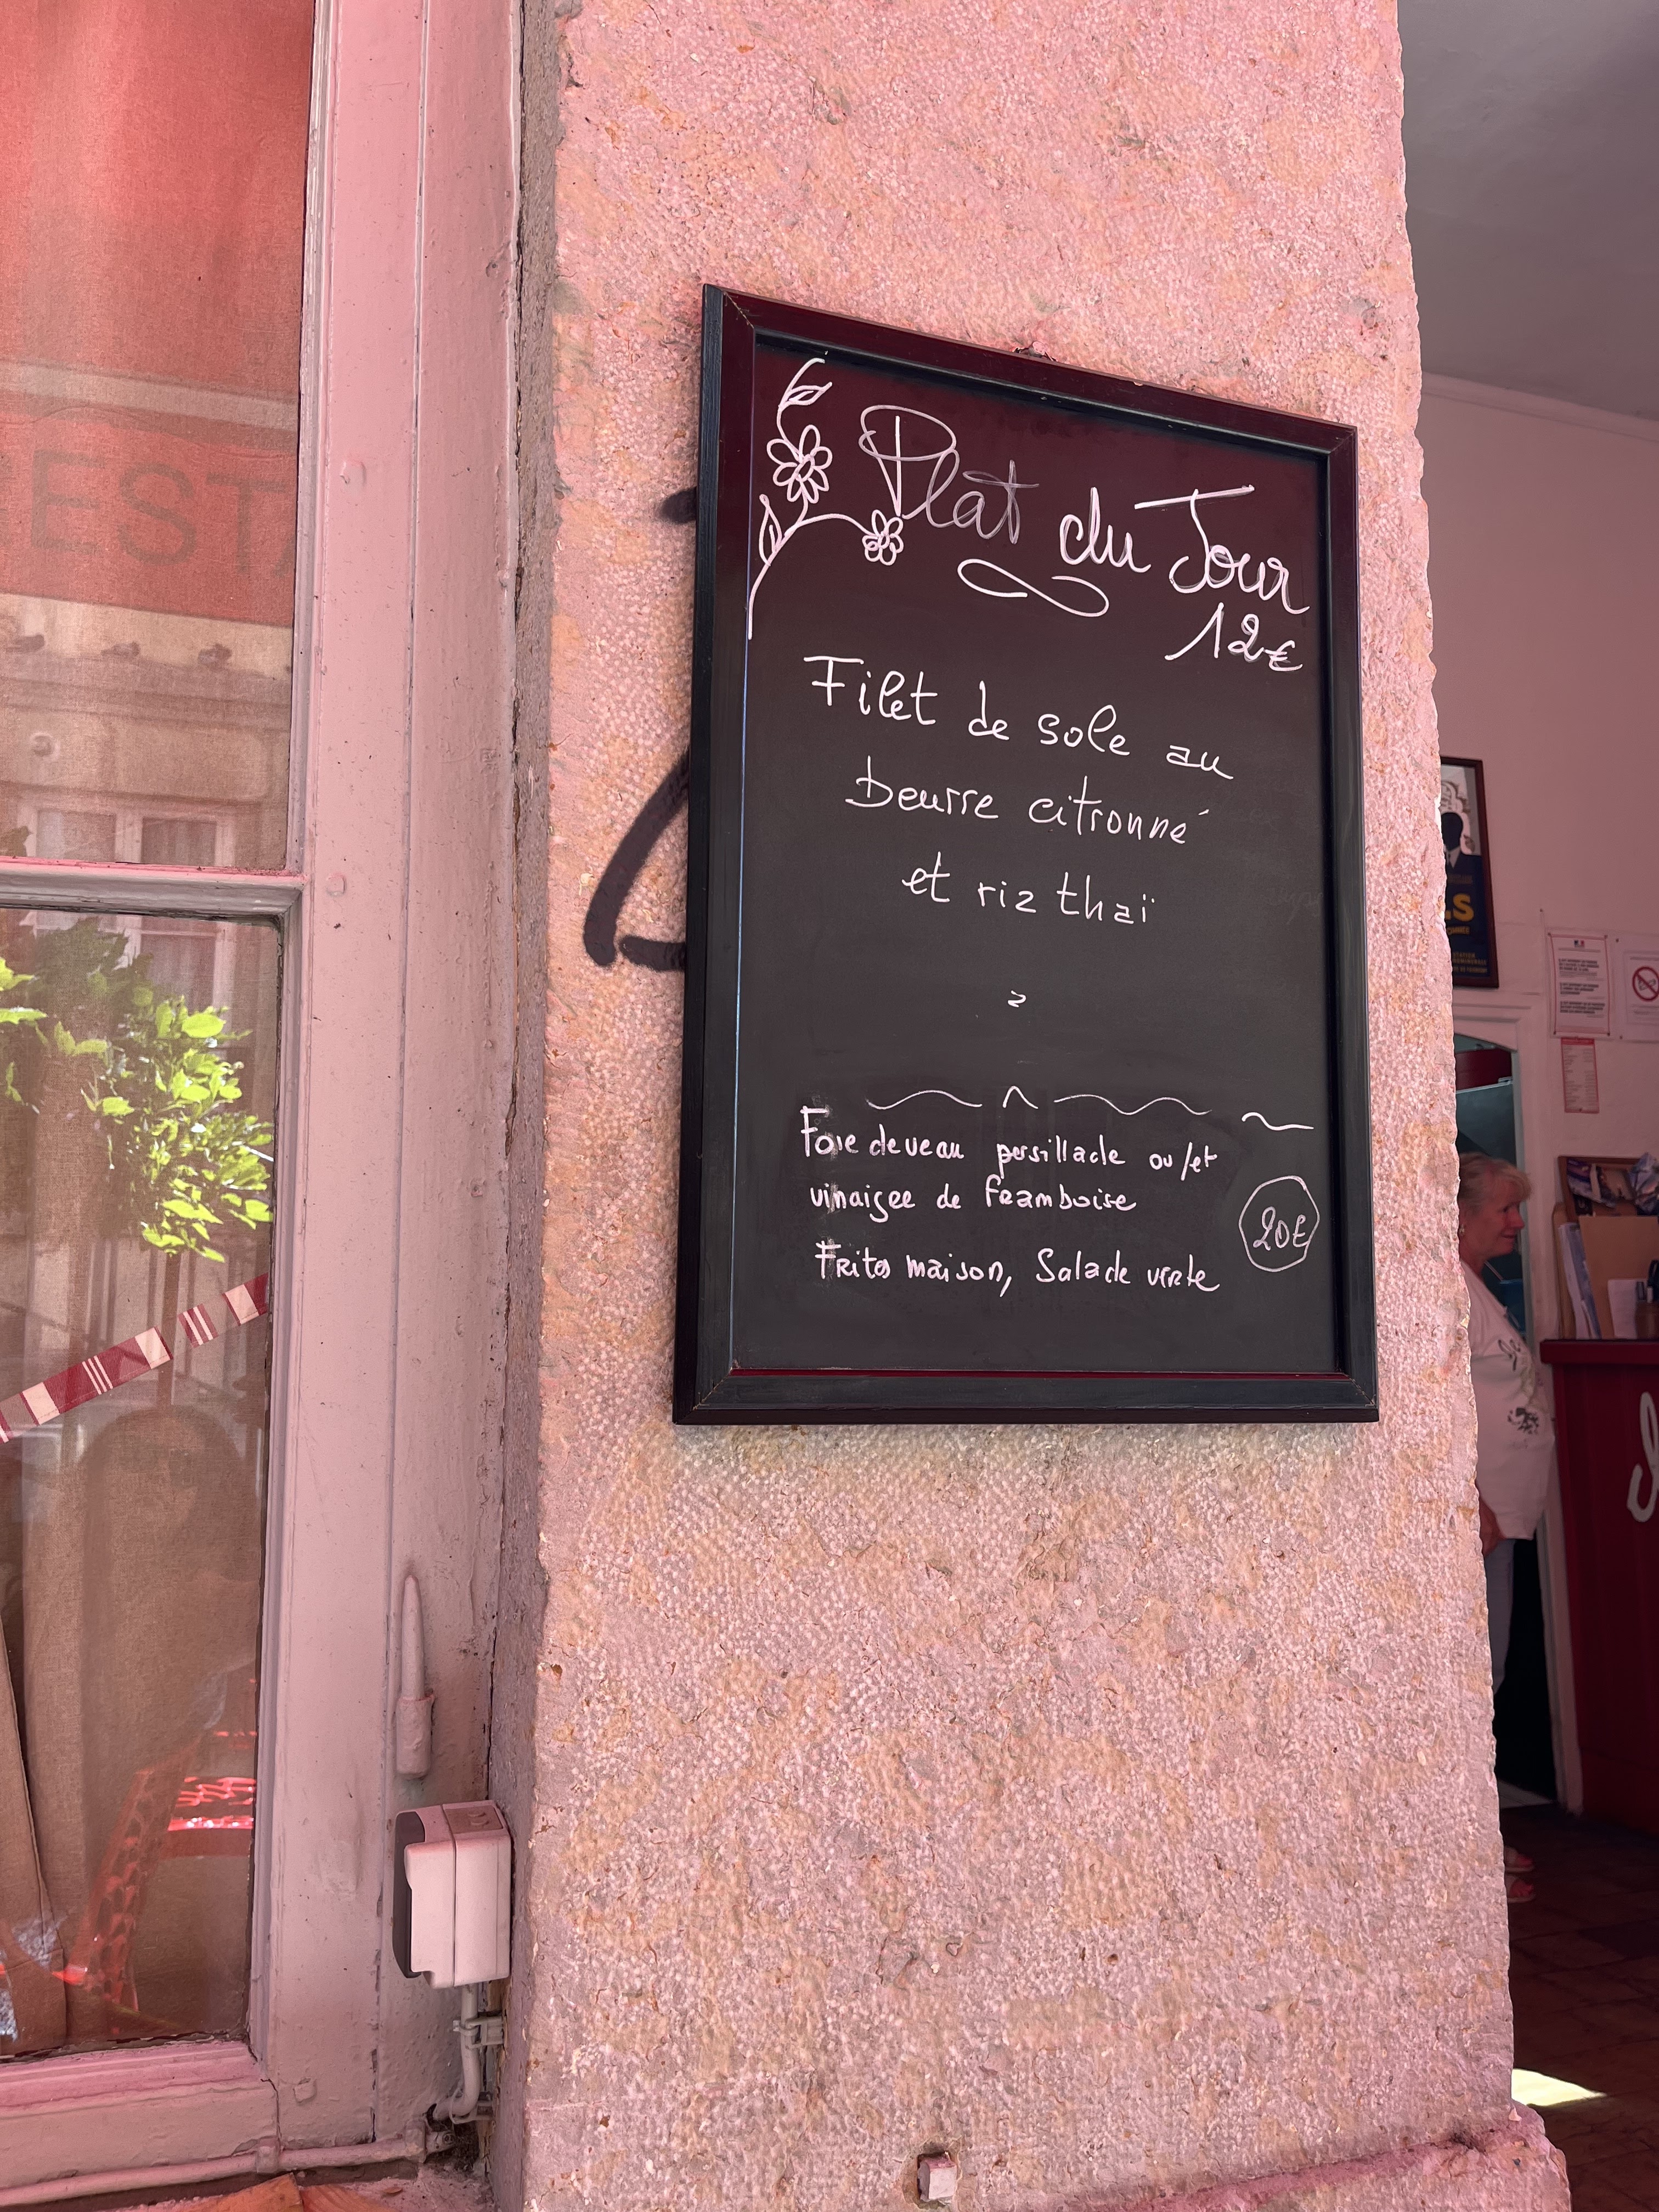 Plat du Jour
12€
Filet de sole au
beurre citronné
et riz thaï
Foie de veau persillade ou/et
vinaigre de framboise
20€
Frites maison, Salade verte
EST